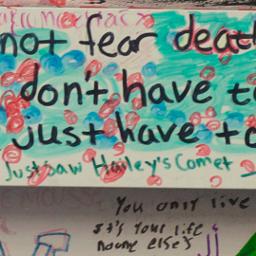 not fear death
don't have to
just have to
Just saw Hailey's Comet
You only live
It's your life
noone else's